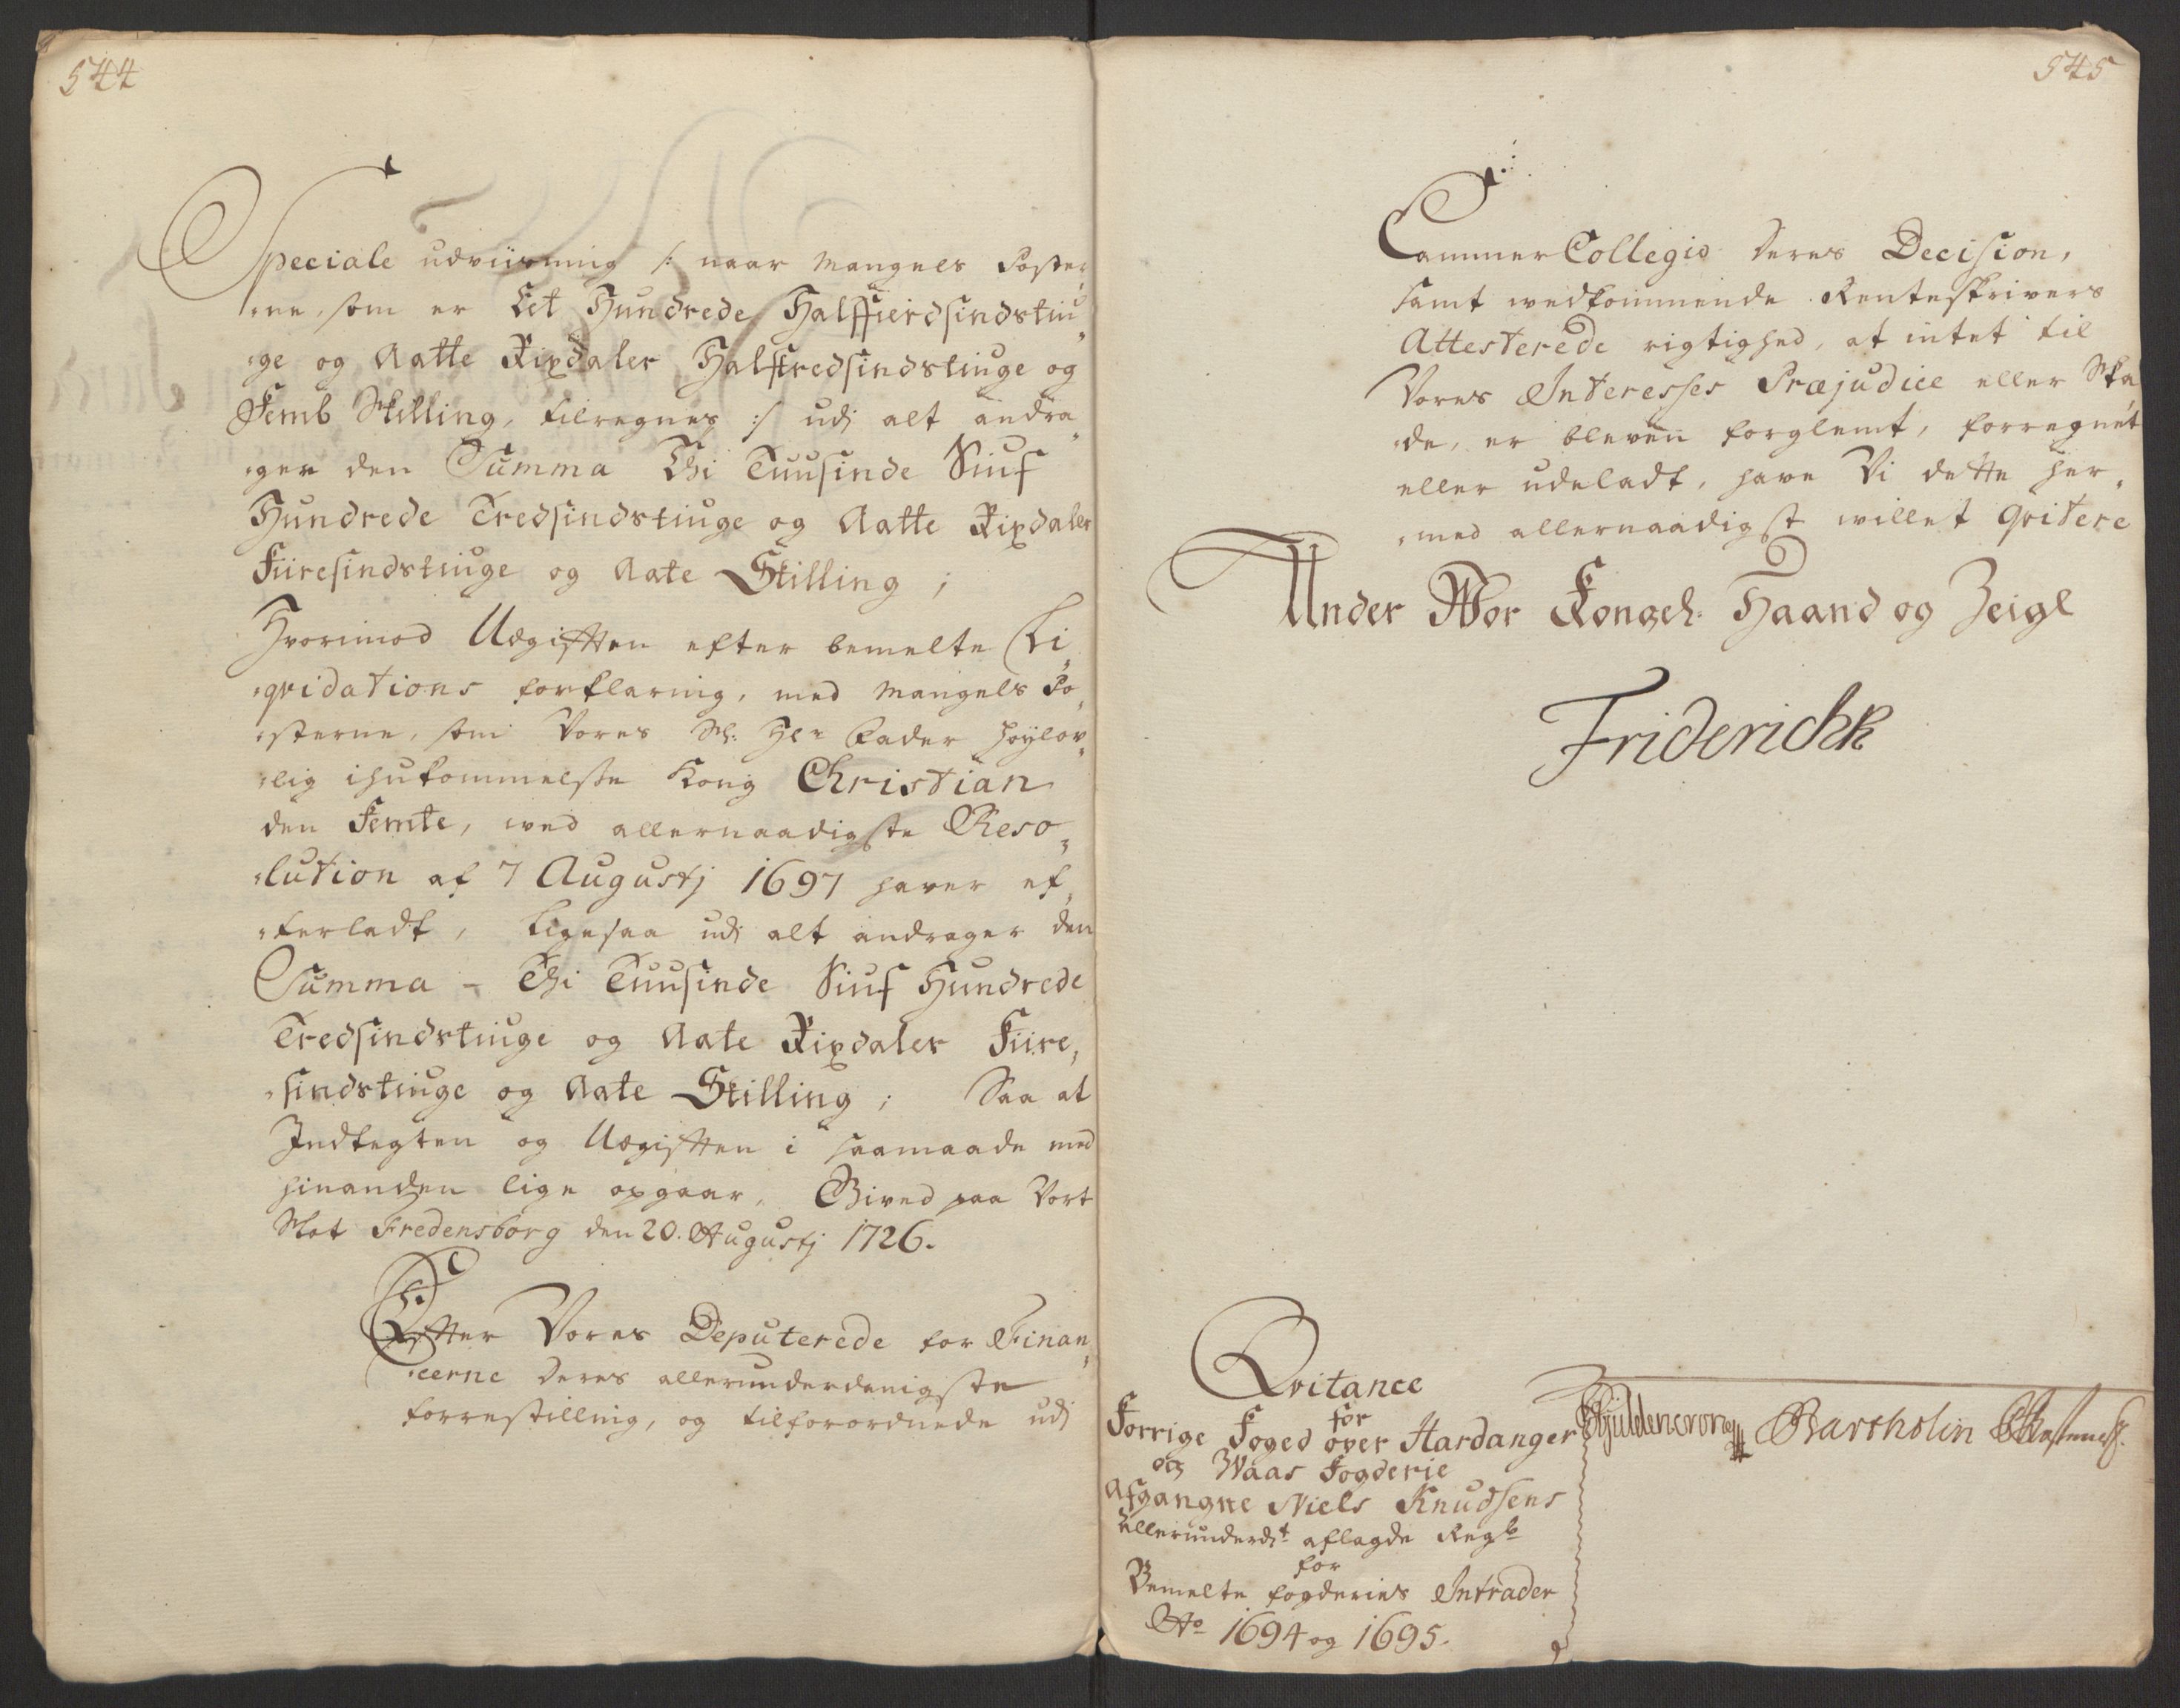 544
Speciale udviisning /: naar Mangels Poster,
,ne, som er Eet Hundrede Halffierdsindstiu,,
,ge og Aatte Rixdaler Halftredsindstiuge og
Femb Skilling, tilregnes :/ udi alt andra,,
,ger den Summa Thi Tuusinde Siuf
Hundrede Tredsindstiuge og Aatte Rixdaler
Fiiresindstiuge og Aate Skilling ;
Hvorimod Udgifften efter bemelte Li,,
,qvidations forklaring, med Mangels Po,,
,sterne, som Vores Sl: Hr Fader høylov,,
,lig ihukommelse Kong Christian
den Femte, ved allernaadigste Reso,,
,lution af 7 Augustj 1697 haver ef,,
,terladt, ligesaa udi alt andrager den
Summa - Thi Tuusinde Siuf Hundrede
Tredsindstiuge og Aate Rixdaler Fiire,,
,sindstiuge og Aate Skilling ; Saa at
Indtegten og Udgifften i saamaade med
hinanden lige opgaar. Gived paa Vort
Slot Fredensborg den 20. Augustj 1726.
Efter Vores Deputerede for Finan,,
,cerne deres allerunderdanigste
forrestilling, og tilforordnede udi
545
Cammer Collegio deres Decision,
samt vedkommende Renteskrivers
Attesterede rigtighed, at intet til
Vores Interesses Præjudice eller Ska,,
,de, er bleven forglemt, forregnet
eller udeladt, have Vi dette her,,
,med allernaadigst villet qvitere
Under Vor Kongel: Haand og Zeigl
Friderich R
Qvitance
for
Forrige Foged over Hardanger
og Waas Fogderie
Afgangne Niels Knudsens
allerunderdt aflagde Regsk
for
Bemelte fogderies Intrader
Ao 1694 og 1695.
Gyldencrone Bartholin